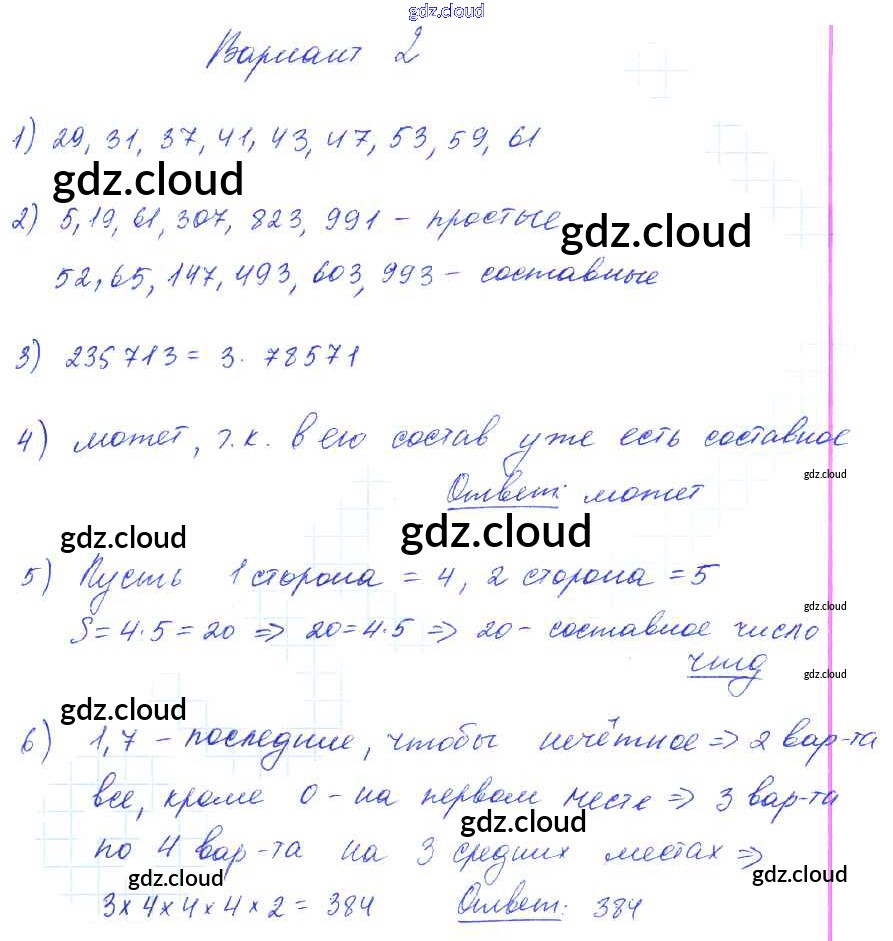 gdz.cloud
Вариант 2
1) 29, 31, 37, 41, 43, 47, 53, 59, 61
gdz.cloud
2) 5, 19, 61, 307, 823, 991 – простые
gdz.cloud
52, 65, 147, 493, 603, 993 – составные
3) 235713 = 3 · 78571
4) может, т.к. в его состав уже есть составное
gdz.cloud
Ответ: может
gdz.cloud gdz.cloud
5) Пусть 1 сторона = 4, 2 сторона = 5
gdz.cloud
S = 4·5 = 20 => 20 = 4·5 => 20 – составное число
чтд
gdz.cloud
gdz.cloud
6) 1, 7 – последние, чтобы нечётное => 2 вар-та
все, кроме 0 – на первом месте => 3 вар-та
gdz.cloud
по 4 вар-та на 3 средних местах =>
gdz.cloud gdz.cloud
3×4×4×4×2 = 384 Ответ: 384